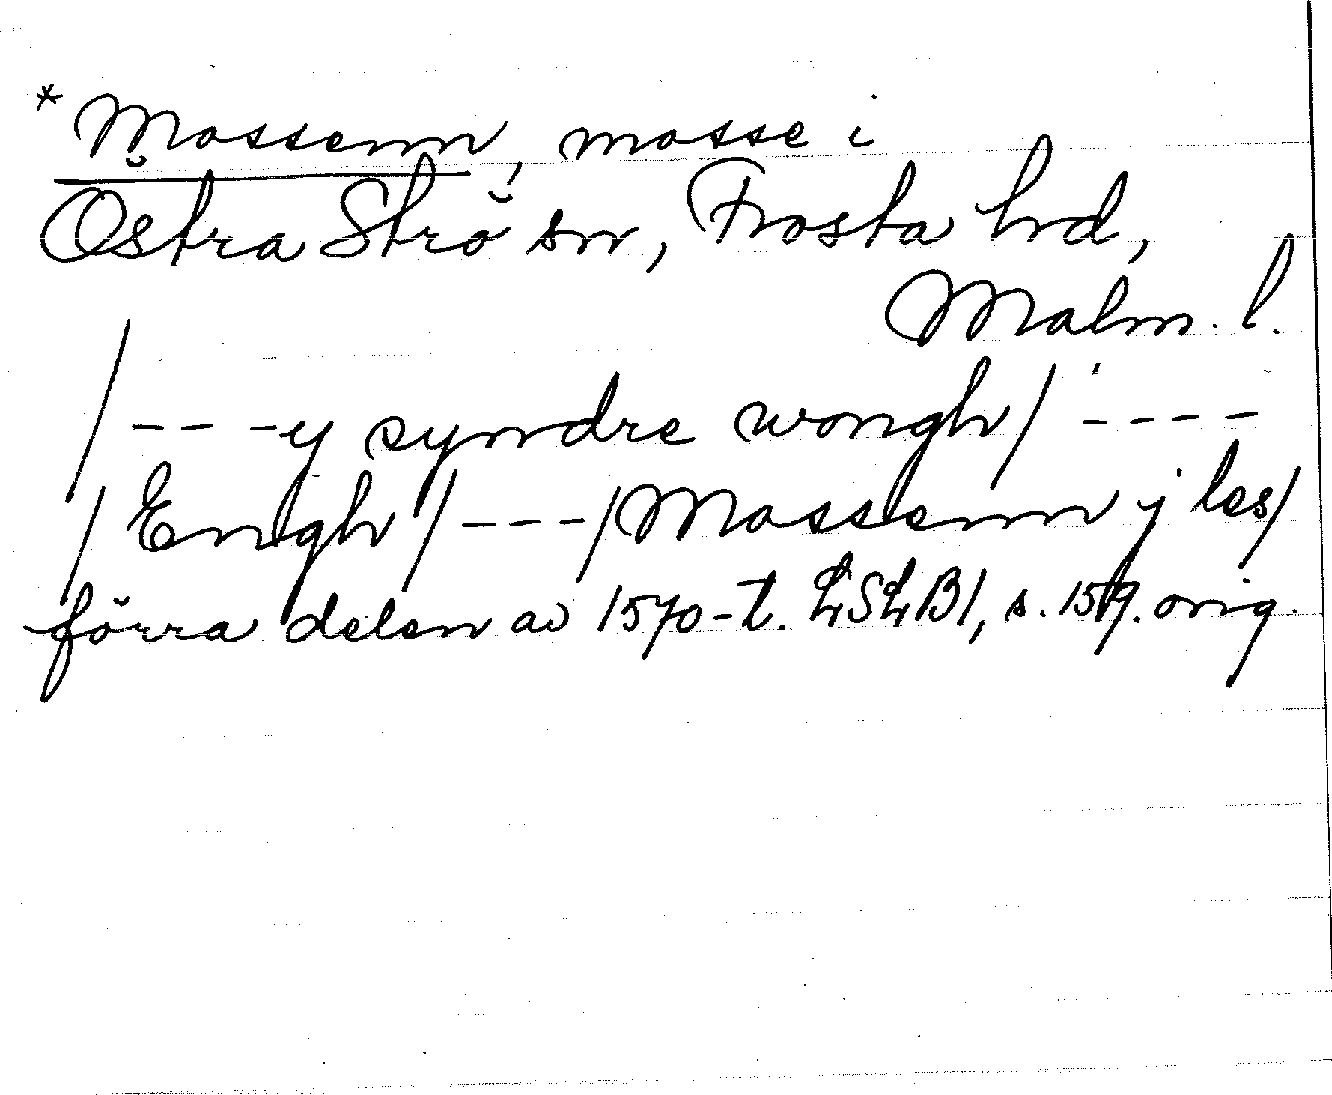 * Mossenn, mosse i
Östra Strö sn, Frosta hd,
Malm. l.
/---y syndre wongh/ ----
/Engh/---/Mossenn j les/
förra delen av 1570-t. LSLB1, s. 159. orig.